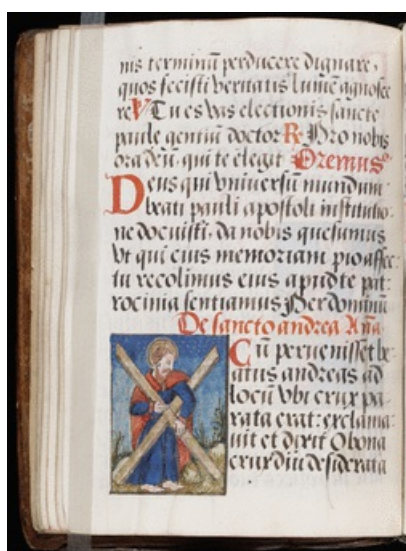 nis terminū perducere dignare.
quos fecisti veritatis lumē agnosce
re V Tu es vas electionis sancte
paule gentiū doctor R Pro nobis
ora deū. qui te elegit Oremus
Deus qui vniuersū mundum
beati pauli apostoli institutio-
ne docuisti. da nobis quesumus
vt qui eius memoriam pio affec-
tu recolimus eius apud te pat-
rocinia sentiamus Per dominū
De sancto andrea Aña
Cū peruenisset be-
atus andreas ad
locū vbi crux pa-
rata erat: exclama-
uit et dixit O bona
crux diu desiderata